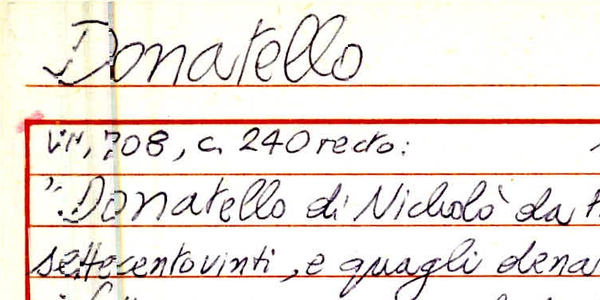 Donatello
VII, 708, c. 240 recto:
"Donatello di Nicholò da
settecentovinti, e quagli dena